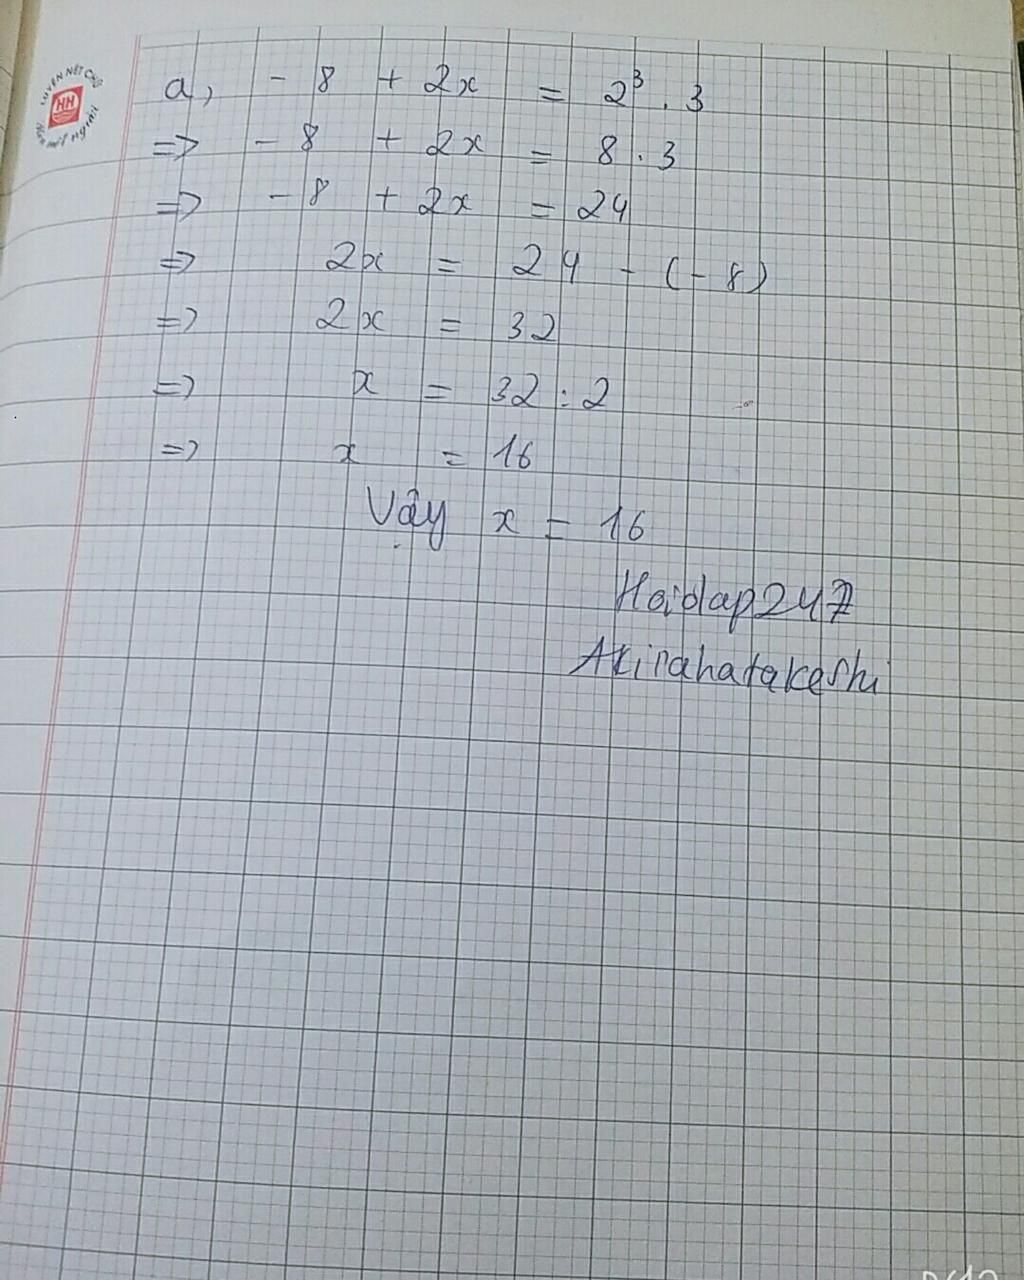 LUYỆN NÉT CHỮ
HH
a, - 8 + 2x = 2³ . 3
=> - 8 + 2x = 8 . 3
=> - 8 + 2x = 24
=> 2x = 24 - (- 8)
=> 2x = 32
=> x = 32 : 2
=> x = 16
Vậy x = 16
Hoidap247
Akirahatakeshi